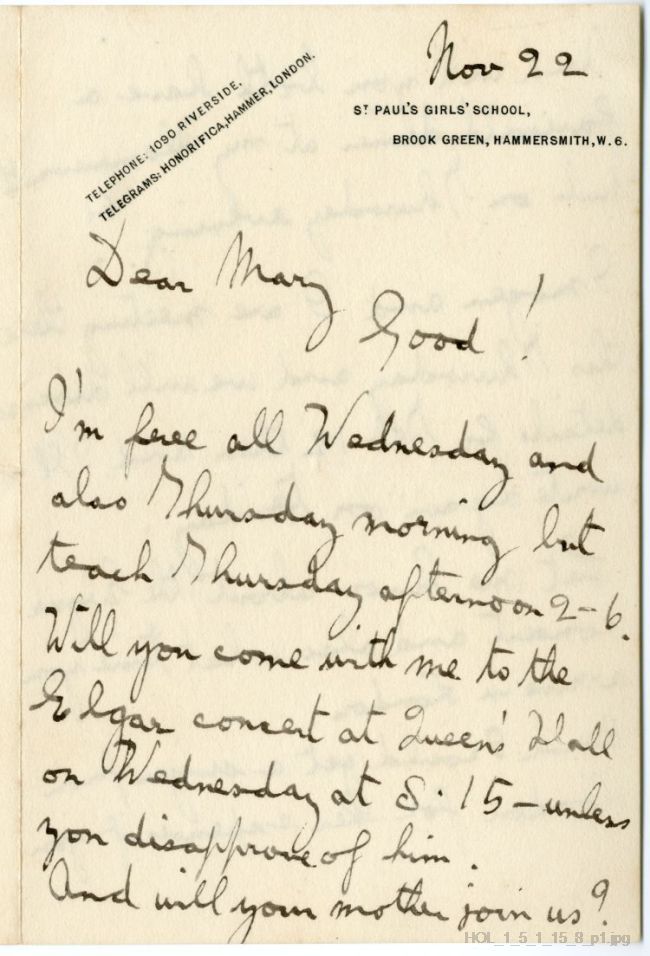 Nov 22
TELEPHONE: 1090 RIVERSIDE.
TELEGRAMS: HONORIFICA, HAMMER, LONDON.
ST PAUL'S GIRLS' SCHOOL,
BROOK GREEN, HAMMERSMITH, W. 6.
Dear Mary
Good!
I'm free all Wednesday and
also Thursday morning but
teach Thursday afternoon 2-6.
Will you come with me to the
Elgar concert at Queen's Hall
on Wednesday at 8.15 – unless
you disapprove of him.
And will your mother join us?
HOL_1_5_1_15_8_p1.jpg